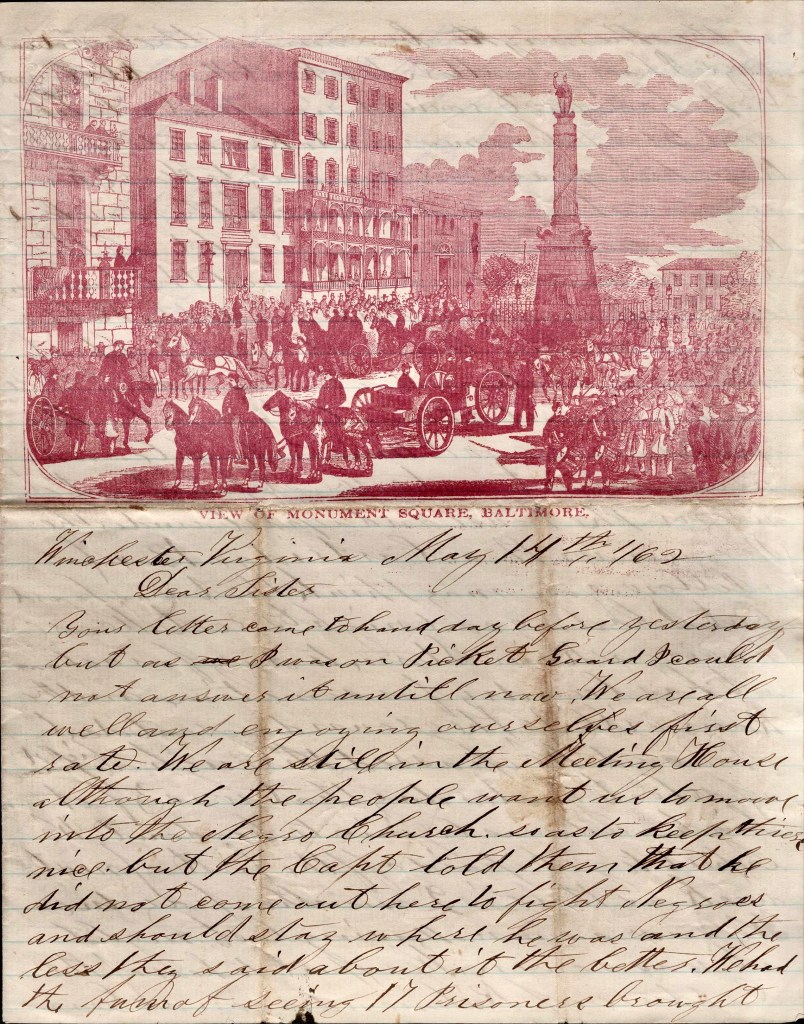 VIEW OF MONUMENT SQUARE, BALTIMORE.
Winchester, Virginia May 14th /62
Dear Sister
Your letter came to hand day before yesterday
but as I was on Picket Guard I could
not answer it untill now. We are all
well and enjoying ourselves first
rate. We are still in the Meeting House
although the people want us to move
into the Negro Church. so as to keep
nice. but the Capt told them that he
did not come out here to fight Negroes
and should stay where he was and the
less they said about it the better. We had
the fun of seeing 17 Prisoners brought